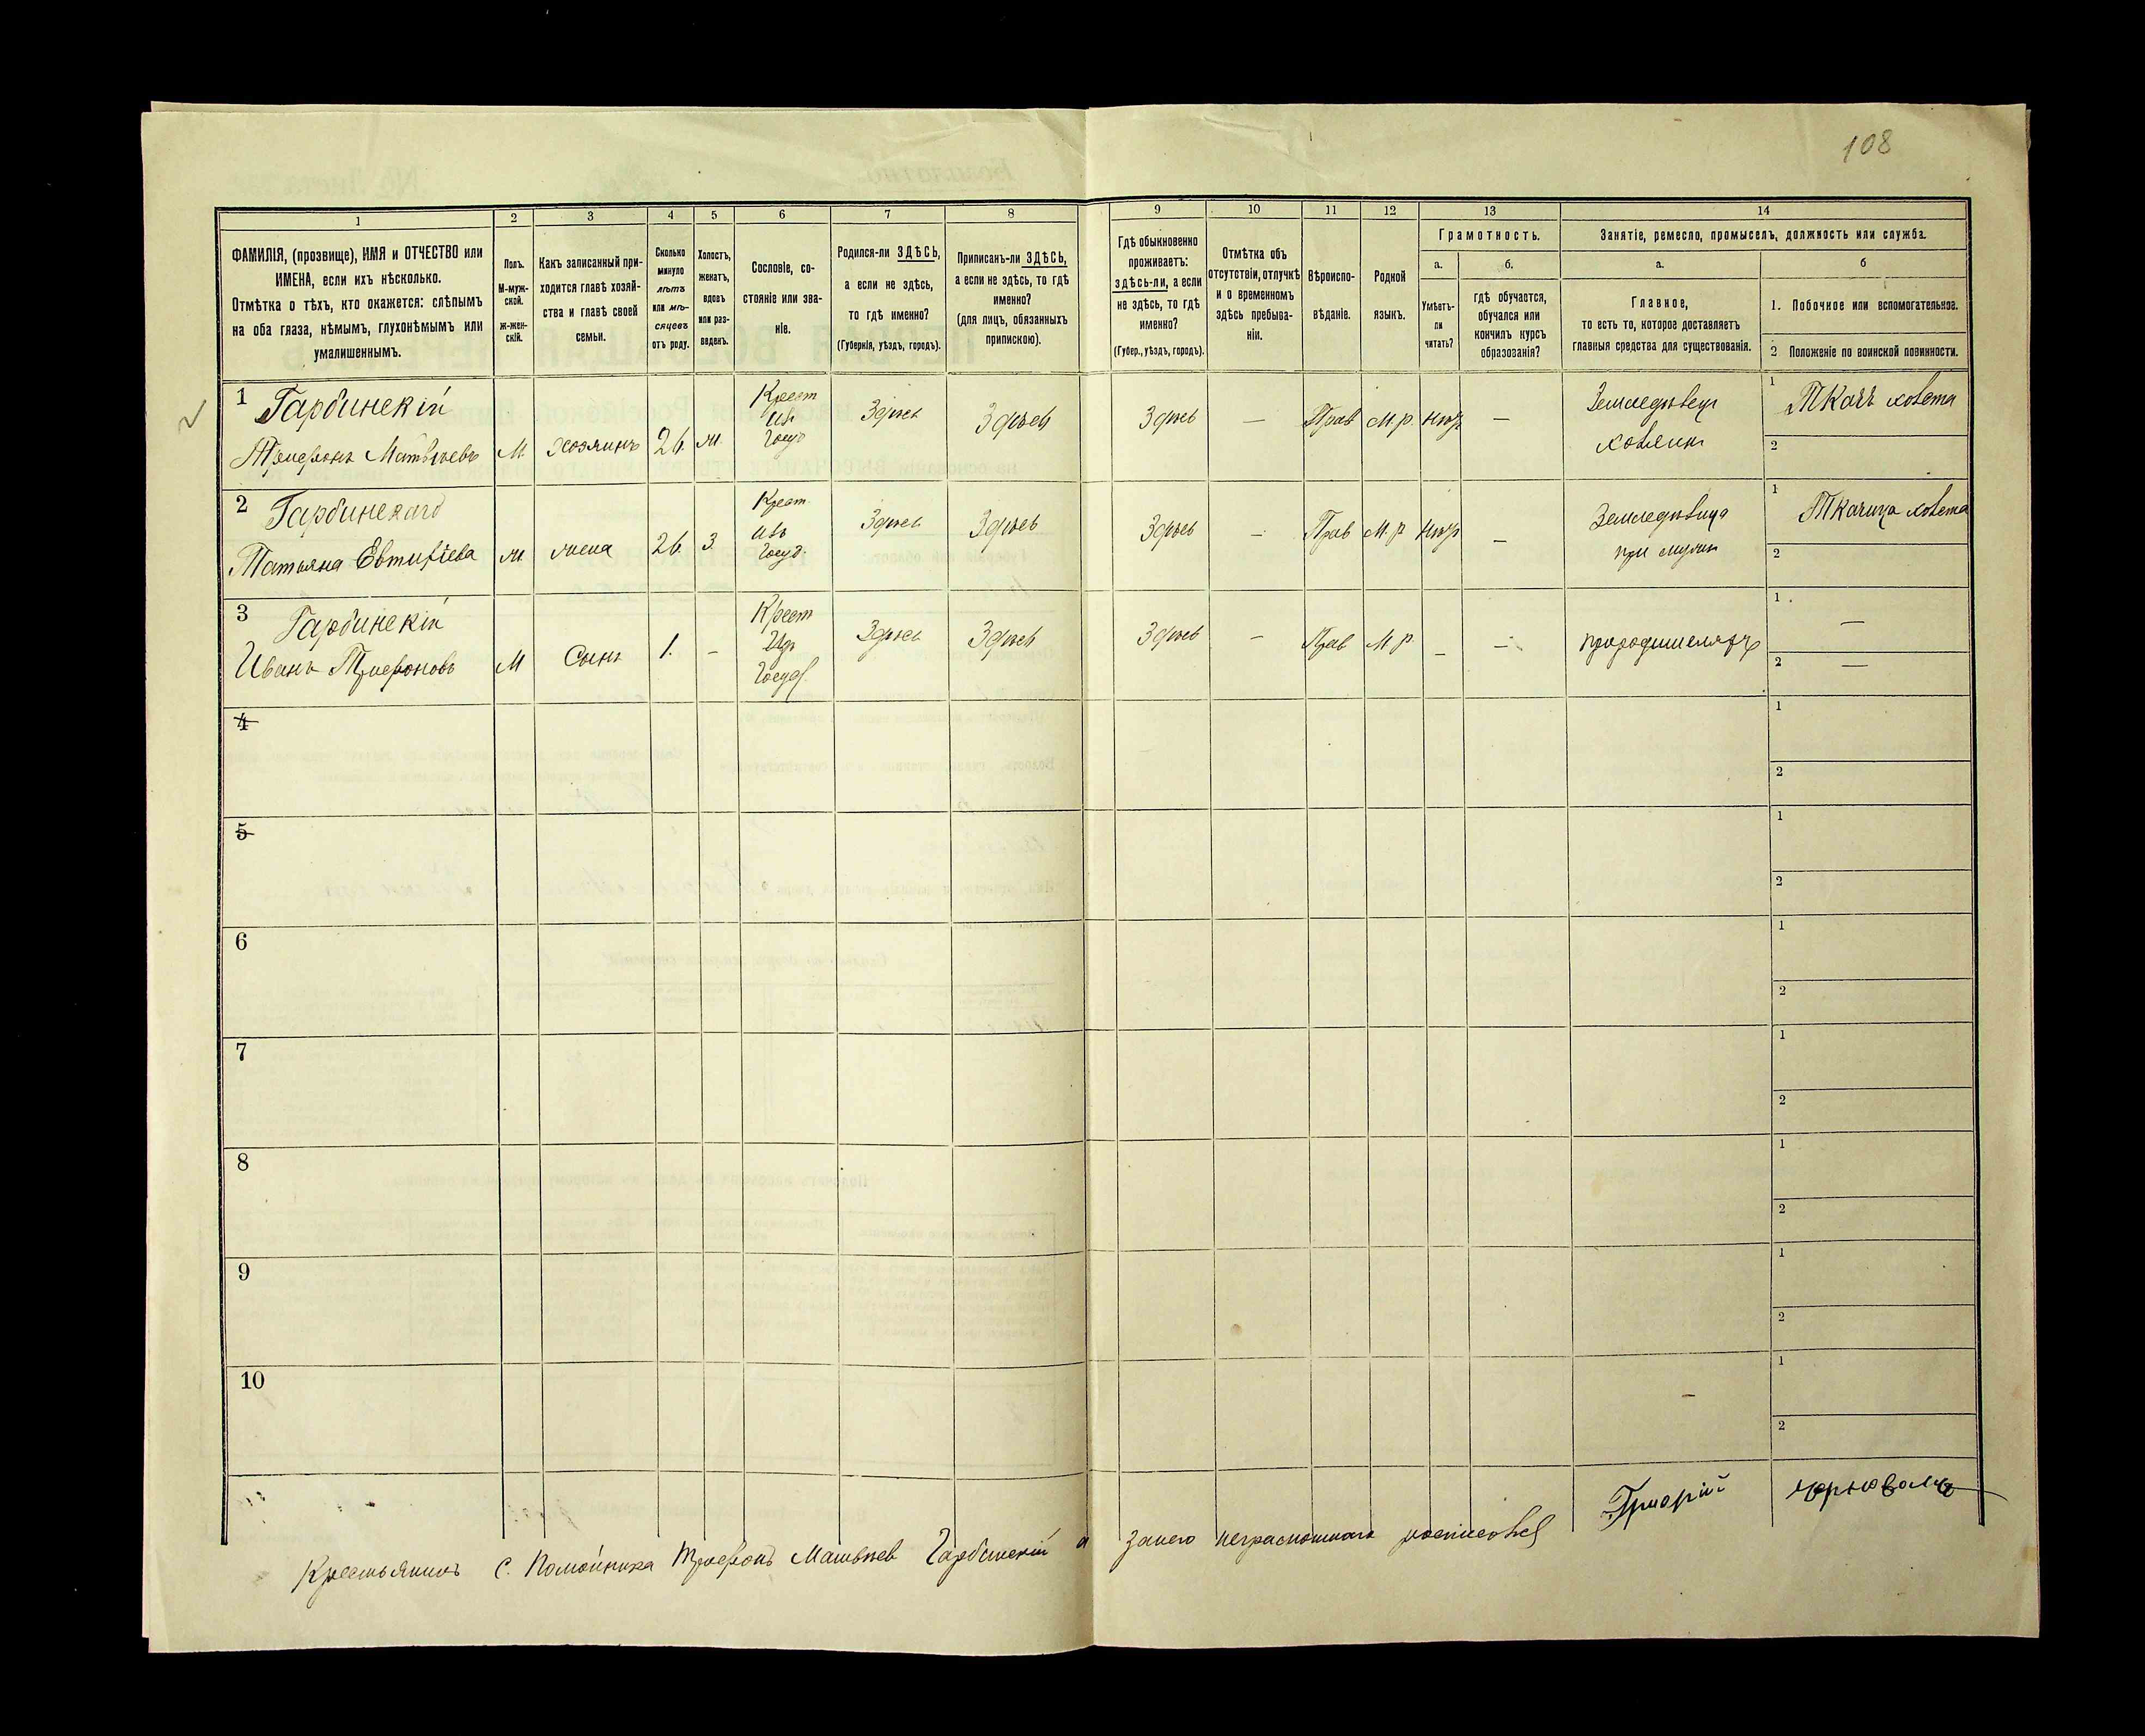 108
1
2
3
4
5
6
7
8
9
10
11
12
13
14
ФАМИЛІЯ, (прозвище), ИМЯ и ОТЧЕСТВО или
ИМЕНА, если ихъ нѣсколько.
Отмѣтка о тѣхъ, кто окажется: слѣпымъ
на оба глаза, нѣмымъ, глухонѣмымъ или
умалишеннымъ.
Полъ.
М-муж-
ской.
Ж-жен-
скій.
Какъ записанный при-
ходится главѣ хозяй-
ства и главѣ своей
семьи.
Сколько
минуло
лѣтъ
или мѣ-
сяцевъ
отъ роду.
Холостъ,
женатъ,
вдовъ
или раз-
веденъ.
Сословіе, со-
стояніе или зва-
ніе.
Родился-ли ЗДѢСЬ,
а если не здѣсь,
то гдѣ именно?
(Губернія, уѣздъ, городъ).
Приписанъ-ли ЗДѢСЬ,
а если не здѣсь, то гдѣ
именно?
(для лицъ, обязанныхъ
припискою).
Гдѣ обыкновенно
проживаетъ:
здѣсь-ли, а если
не здѣсь, то гдѣ
именно?
(Губер., уѣздъ, городъ).
Отмѣтка объ
отсутствіи, отлучкѣ
и о временномъ
здѣсь пребыва-
ніи.
Вѣроиспо-
вѣданіе.
Родной
языкъ.
Грамотность.
а.
б.
Умѣетъ-
ли
читать?
гдѣ обучается,
обучался или
кончилъ курсъ
образованія?
Занятіе, ремесло, промыселъ, должность или служба.
а.
б
Главное,
то есть то, которое доставляетъ
главныя средства для существованія.
1. Побочное или вспомогательное.
2 Положеніе по воинской повинности.
1 Гарбинскій
Трифонъ Матвѣевъ М хозяинъ 26. ж.
Крест
изъ
Госуд
Здѣсь Здѣсь Здѣсь — Прав М.р. нѣт —
Земледѣлец
хозяин
1 Ткачъ
2
2 Гарбинская
Татьяна Евтихіева ж жена 26. З.
Крест.
изъ
Госуд.
Здѣсь Здѣсь Здѣсь — Прав М.р нѣт —
Земледѣлица
при мужѣ
1 Ткачиха
2
3 Гарбинскій
Иванъ Трифоновъ М Сынъ 1. —
Крест
Изъ
Госуд
Здѣсь Здѣсь Здѣсь — Прав М.р — —
при родителяхъ
1 —
2 —
4
1
2
5
1
2
6
1
2
7
1
2
8
1
2
9
1
2
10
1
2
Крестьянинъ С. Помойника Трифонъ Матвѣев Гарбинскій а за него неграмотнаго росписался
Григорій